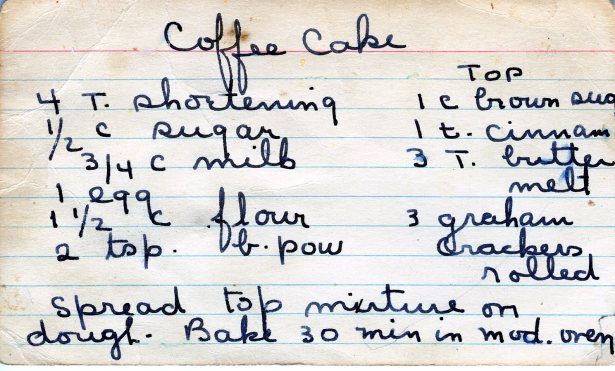 Coffee Cake
4 T. shortening
1/2 c sugar
3/4 c milk
1 egg
1 1/2 c flour
2 tsp. b. pow
TOP
1 c brown sug
1 t. cinnam
3 T. butter
melt
3 graham
crackers
rolled
Spread top mixture on
dough. Bake 30 min in mod. oven